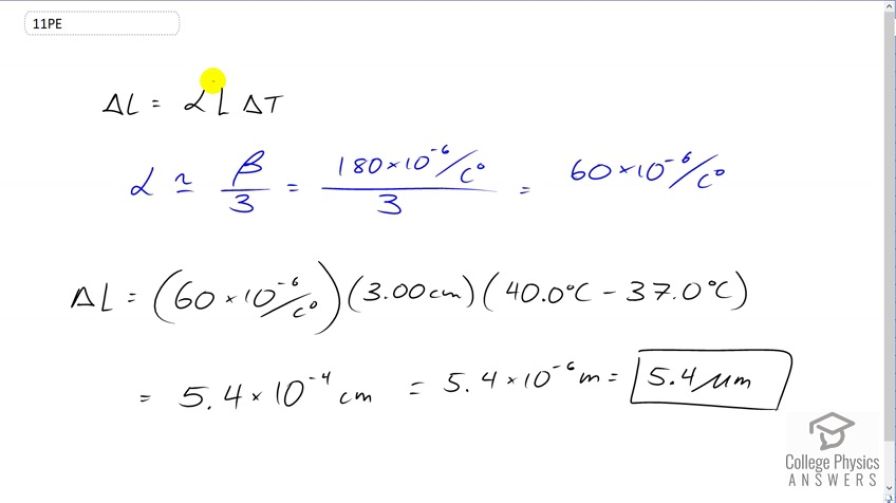 11PE
ΔL = αL ΔT
α ≃ β/3 = 180×10⁻⁶/C°/3 = 60×10⁻⁶/C°
ΔL = (60×10⁻⁶/C°)(3.00cm)(40.0°C − 37.0°C)
= 5.4×10⁻⁴ cm = 5.4×10⁻⁶ m = 5.4 μm
College Physics
ANSWERS